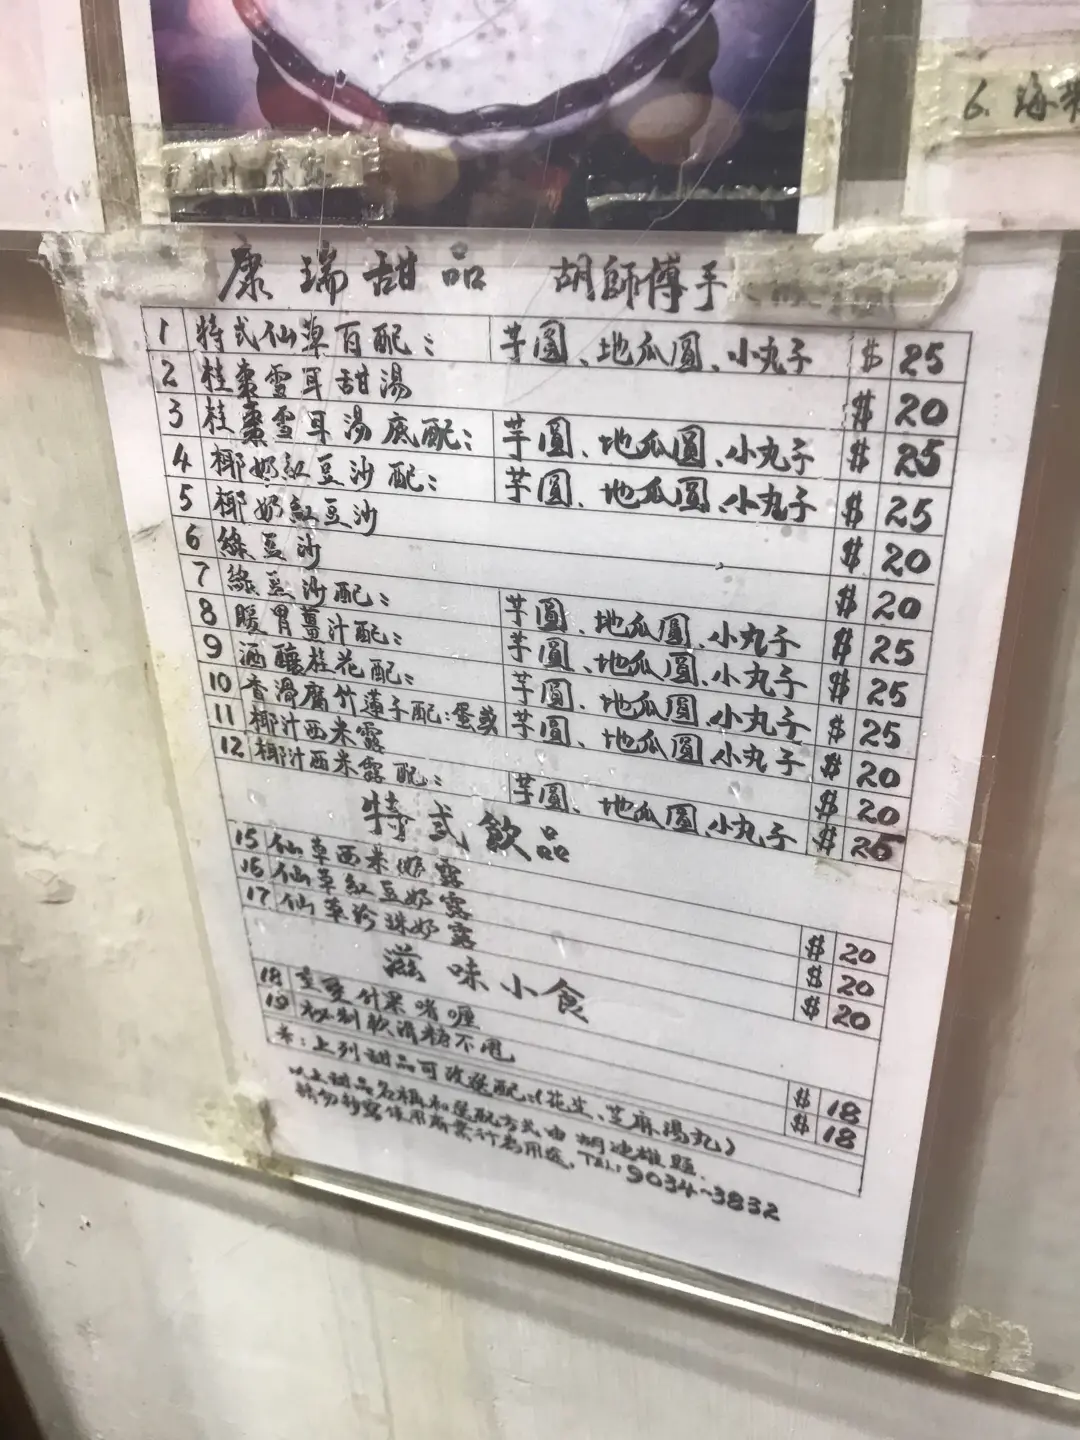 6. 海
康瑞甜品 胡師傅手
1 特式仙草百配： 芋圓、地瓜圓、小丸子 $ 25
2 桂棗雪耳甜湯 $ 20
3 桂棗雪耳湯底配： 芋圓、地瓜圓、小丸子 $ 25
4 椰奶紅豆沙配： 芋圓、地瓜圓、小丸子 $ 25
5 椰奶紅豆沙 $ 20
6 綠豆沙 $ 20
7 綠豆沙配： 芋圓、地瓜圓、小丸子 $ 25
8 暖胃薑汁配： 芋圓、地瓜圓、小丸子 $ 25
9 酒釀桂花配： 芋圓、地瓜圓、小丸子 $ 25
10 香滑腐竹蓮子配：蛋 芋圓、地瓜圓、小丸子 $ 20
11 椰汁西米露 $ 20
12 椰汁西米露配： 芋圓、地瓜圓、小丸子 $ 25
特式飲品
15 仙草西米奶露 $ 20
16 仙草紅豆奶露 $ 20
17 仙草珍珠奶露 $ 20
滋味小食
18 至愛什果啫喱 $ 18
19 秘制軟滑糖不甩 $ 18
*：上列甜品可改選配：(花生、芝麻湯丸)
以上甜品名稱和選配方式由胡 雄題
請勿抄寫作用商業行為用途，TEL：9034-3832